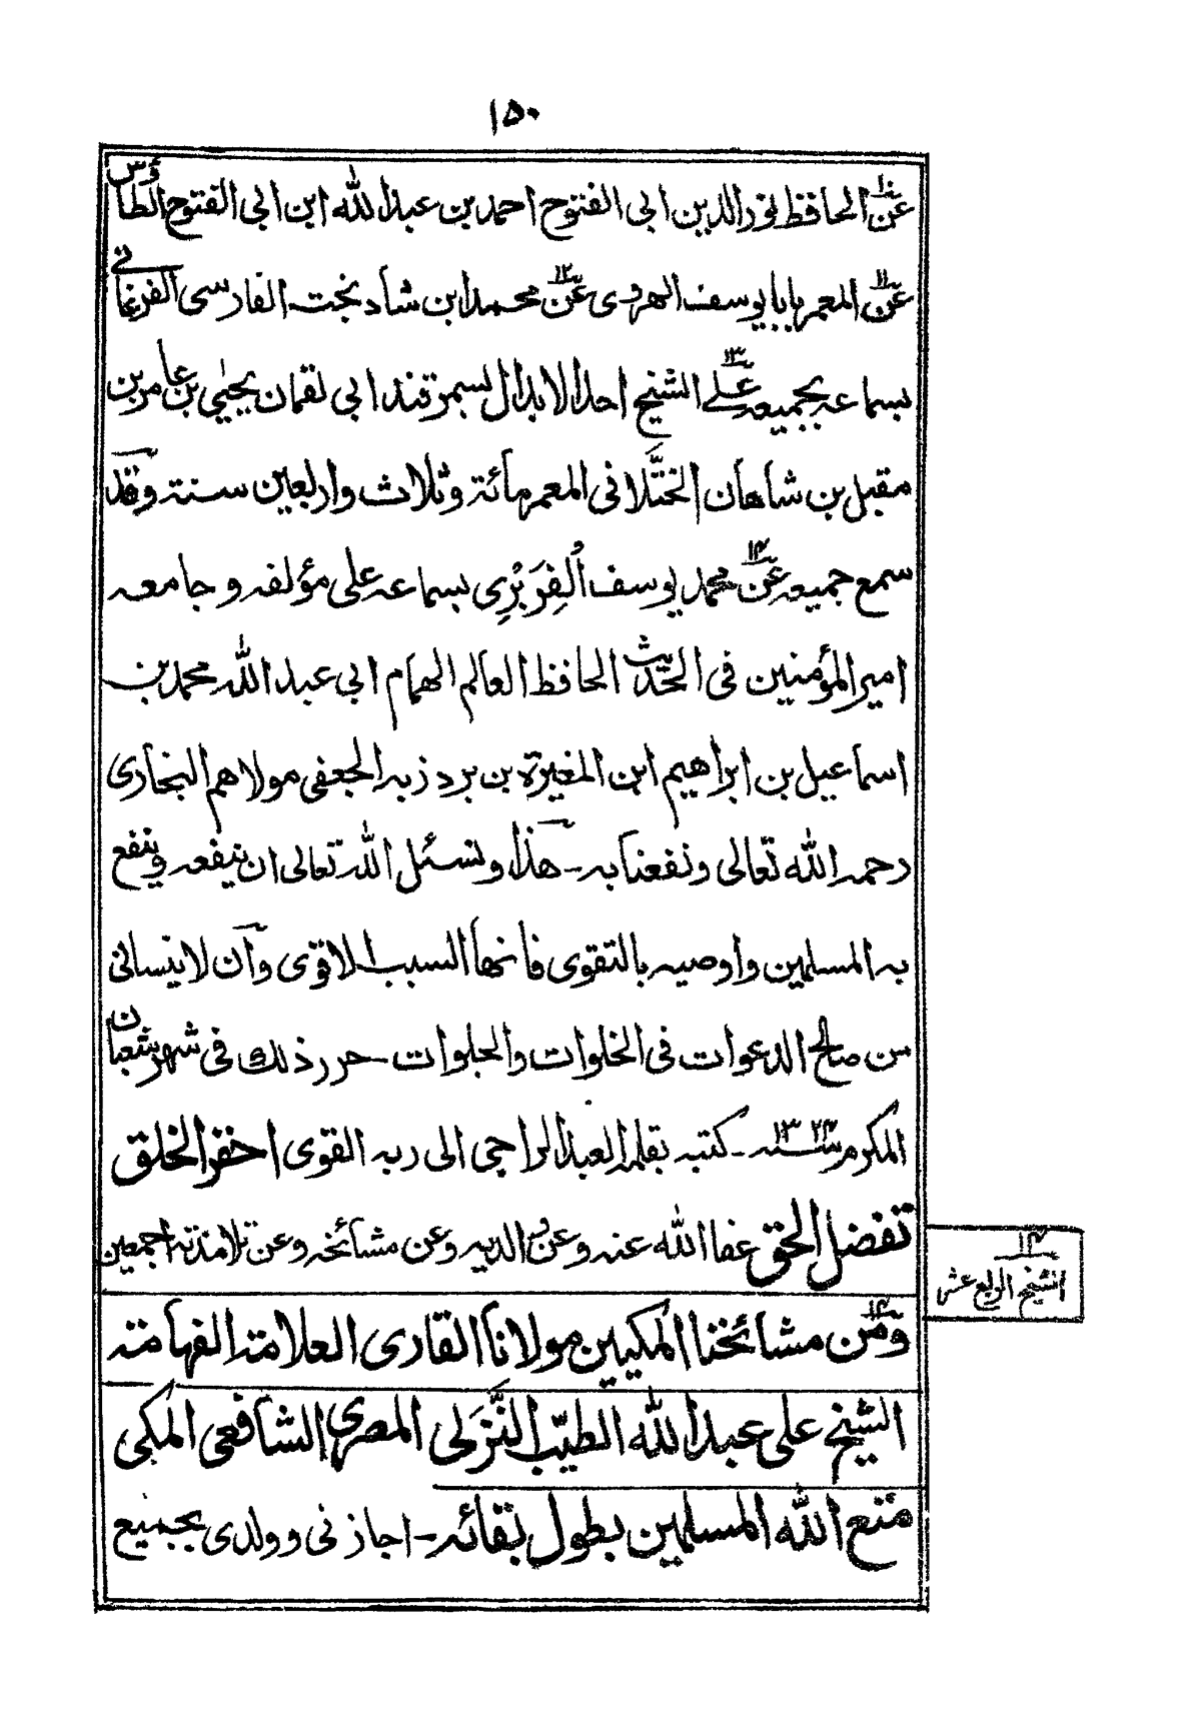 ١٥٠
عن الحافظ نور الدين ابى الفتوح احمد بن عبد الله ابن ابى الفتوح الطاؤس
١٠
عن المعمر بابا يوسف الهروى عن محمد ابن شاد بخت الفارسى الفرغانى
١١ ١٢
بسماعه بجميعه على الشيخ احد الابدال بسمرقند ابى لقمان يحيى بن عامر بن
١٣
مقبل بن شاهان الختلانى المعمر مائة وثلاث واربعين سنة وقد
سمع جميعه عن محمد يوسف الفَِرَبْرِى بسماعه على مؤلفه وجامعه
١٤
امير المؤمنين فى الحديث الحافظ العالم الهمام ابى عبد الله محمد بن
اسماعيل بن ابراهيم ابن المغيرة بن بردزبه الجعفى مولاهم البخارى
رحمه الله تعالى ونفعنا به - هذا ونسئل الله تعالى ان ينفعه وينفع
به المسلمين واوصيه بالتقوى فانها السبب الاقوى وان لا ينسانى
من صالح الدعوات فى الخلوات والجلوات - حرر ذلك فى شهر شعبان
المكرم سنه ١٣٢٣ - كتبه بقلمه العبد الراجى الى ربه القوى احقر الخلق
تفضل الحق عفا الله عنه وعن والديه وعن مشائخه وعن تلامذته اجمعين
ومن مشائخنا المكيين مولانا القارى العلامة الفهامة
١٤
الشيخ على عبد الله الطيّب النَّزَلى المصرى الشافعى المكى
متع الله المسلمين بطول بقائه - اجازنى وولدى بجميع
١٤
الشيخ الرابع عشر